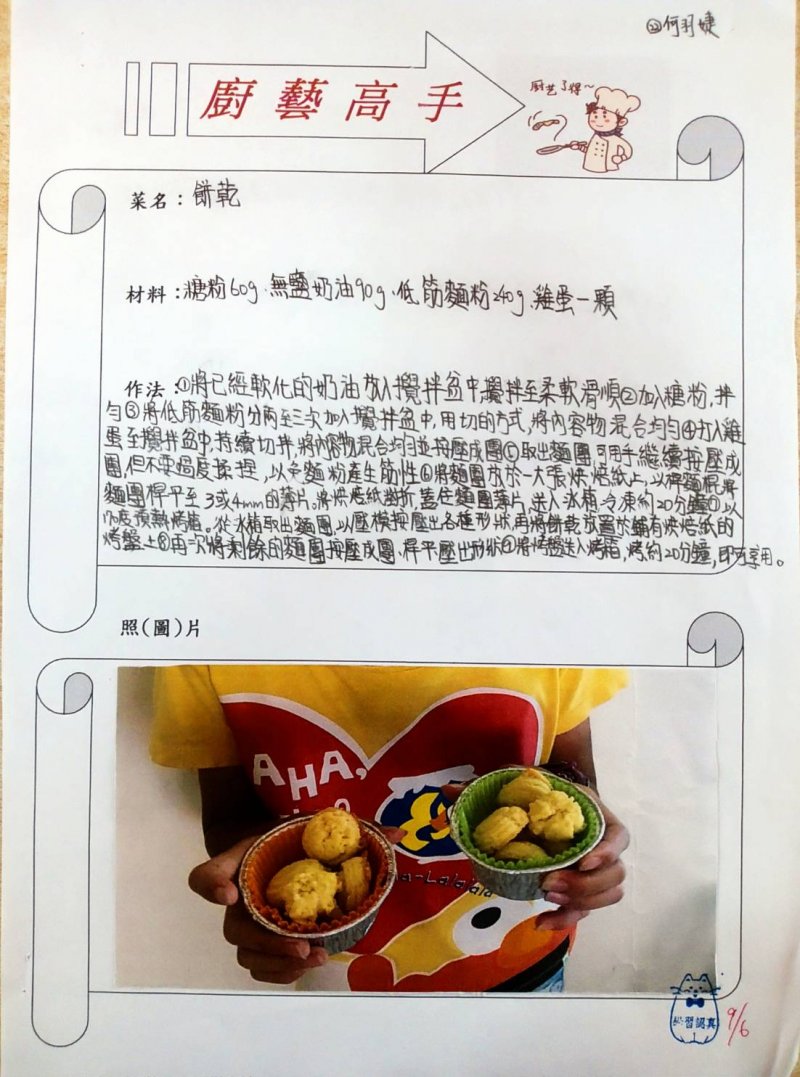 ㉒何羽婕
廚藝高手
厨艺了得~
菜名：餅乾
材料：糖粉60g、無鹽奶油90g、低筋麵粉240g、雞蛋一顆
作法：①將已經軟化的奶油放入攪拌盆中,攪拌至柔軟滑順②加入糖粉,拌
勻③將低筋麵粉分兩至三次加入攪拌盆中,用切的方式,將內容物混合均勻④打入雞
蛋至攪拌盆中,持續切拌,將內容物混合均勻並按壓成團⑤取出麵團,可用手繼續按壓成
團,但不要過度揉捏,以免麵粉產生筋性⑥將麵團放於一大張烘焙紙上,以桿麵棍將
麵團桿平至3或4mm的薄片。將烘焙紙對折,蓋住麵團薄片,送入冰箱,冷凍約20分鐘⑦以
170度預熱烤箱。從冰箱取出麵團,以壓模按壓出各種形狀,再將餅乾放置於鋪有烘焙紙的
烤盤上⑧再一次將剩餘的麵團按壓成團、桿平壓出形狀⑨將烤盤送入烤箱,烤約20分鐘,即可享用。
照(圖)片
AHA,
a-Lalalala
學習認真
9/6